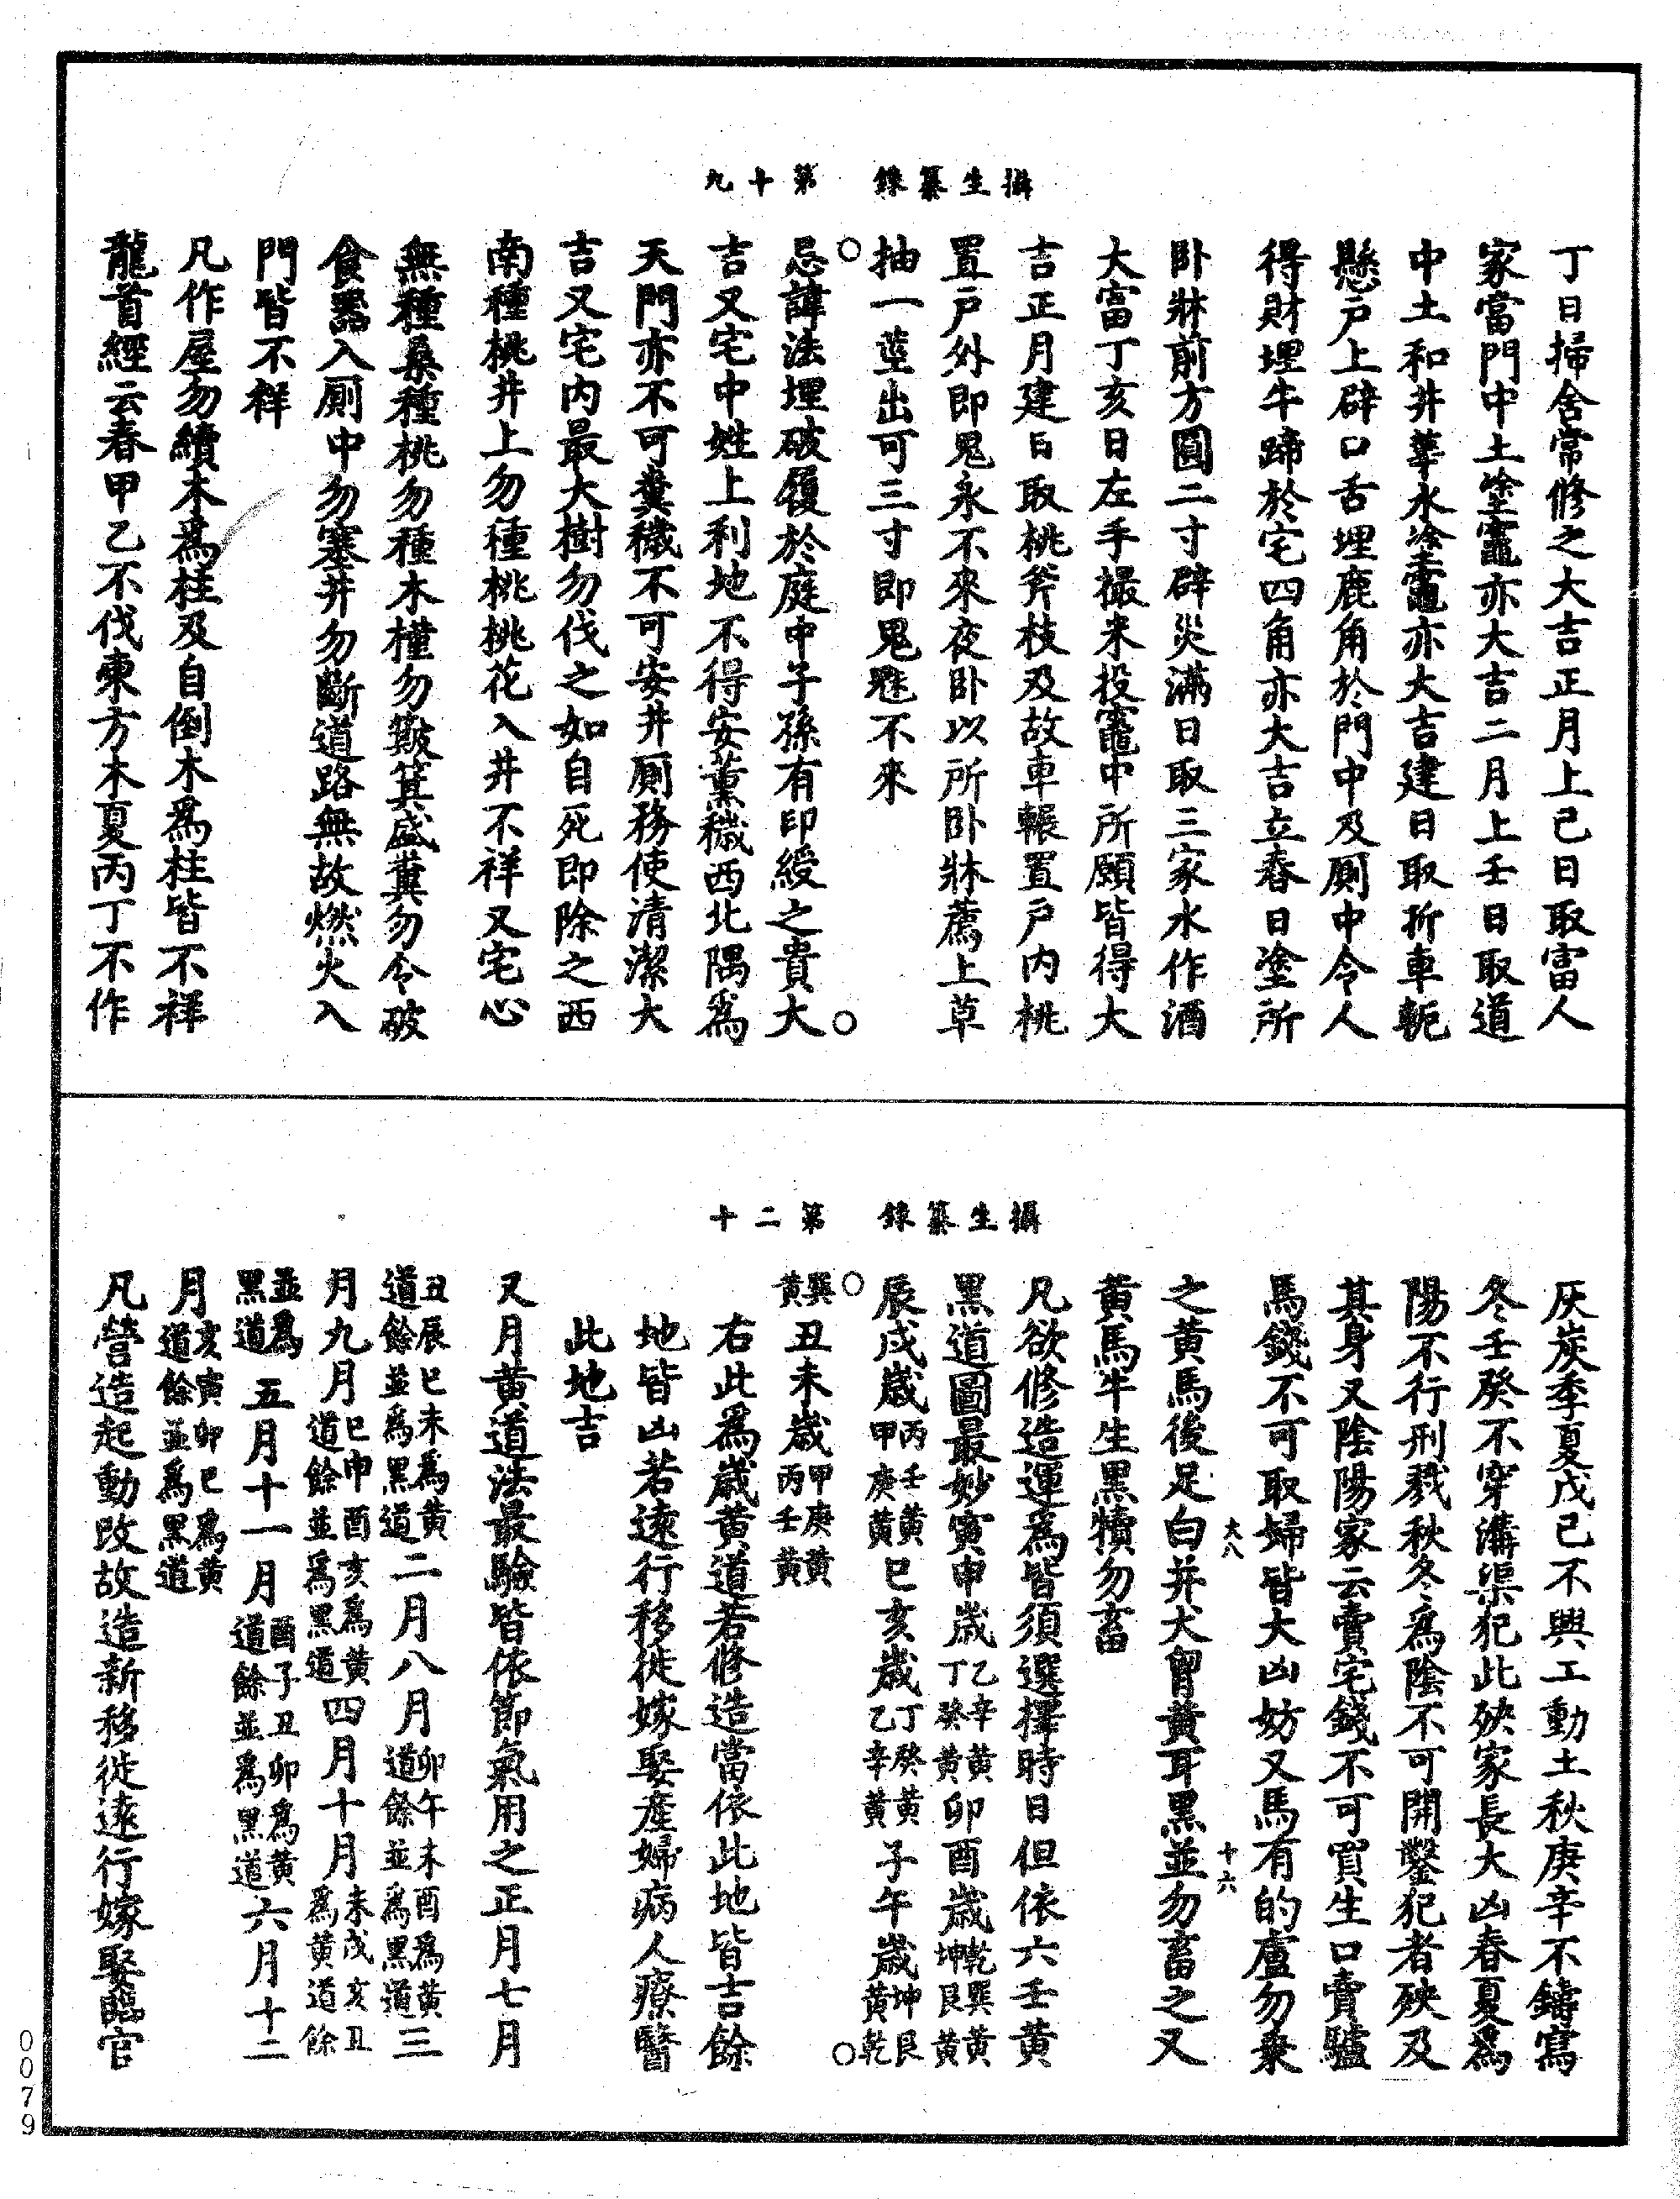 攝生纂錄　第十九
丁日掃舍常修之大吉正月上己日取富人
家當門中土塗竈亦大吉二月上壬日取道
中土和井華水塗竈亦大吉建日取折車軛
懸戶上辟口舌埋鹿角於門中及厠中令人
得財埋牛蹄於宅四角亦大吉立春日塗所
卧牀前方圓二寸辟災滿日取三家水作酒
大富丁亥日左手撮米投竈中所願皆得大
吉正月建日取桃斧枝及故車輾置戶內桃
置戶外即鬼永不來夜卧以所卧牀薦上草
抽一莖出可三寸即鬼魅不來
○忌諱法埋破履於庭中子孫有印綬之貴大○
吉又宅中姓上利地不得安薰穢西北隅爲
天門亦不可糞穢不可安井厠務使清潔大
吉又宅内最大樹勿伐之如自死即除之西
南種桃井上勿種桃桃花入井不祥又宅心
無種桑種桃勿種木槿勿㪇箕盛糞勿令破
食器入厠中勿塞井勿斷道路無故燃火入
門皆不祥
凡作屋勿續木爲柱及自倒木爲柱皆不祥
龍首經云春甲乙不伐東方木夏丙丁不作
攝生纂錄　第二十
灰炭季夏戊己不興工動土秋庚辛不鑄寫
冬壬癸不穿溝渠犯此殃家長大凶春夏爲
陽不行刑戮秋冬爲陰不可開鑿犯者殃及
其身又陰陽家云賣宅錢不可買生口賣驢
馬錢不可取婦皆大凶妨又馬有的盧勿乗
大八　十六
之黄馬後足白并犬胷黄耳黑並勿畜之又
黄馬牛生黑犢勿畜
凡欲修造運爲皆須選擇時日但依六壬黄
黑道圖最妙寅申歲乙辛黄丁癸黄卯酉歲乾巽黄坤艮黄
○辰戌歲丙壬黄甲庚黄巳亥歲丁癸黄乙辛黄子午歲坤艮黄乾○
巽黄丑未歲甲庚黄丙壬黄
右此爲歲黄道若修造當依此地皆吉餘
地皆凶若遠行移徙嫁娶産婦病人療醫
此地吉
又月黄道法最驗皆依節氣用之正月七月
丑辰巳未爲黄道餘並爲黑道二月八月卯午未酉爲黄道餘並爲黑道三
月九月巳申酉亥爲黄道餘並爲黑道四月十月未戌亥丑爲黄道餘
並爲黑道五月十一月酉子丑卯爲黄道餘並爲黑道六月十二
月亥寅卯巳爲黄道餘並爲黑道
凡營造起動改故造新移徙遠行嫁娶臨官
0079